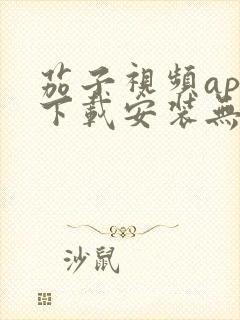 茄子視頻ap
下載安装無
沙鼠